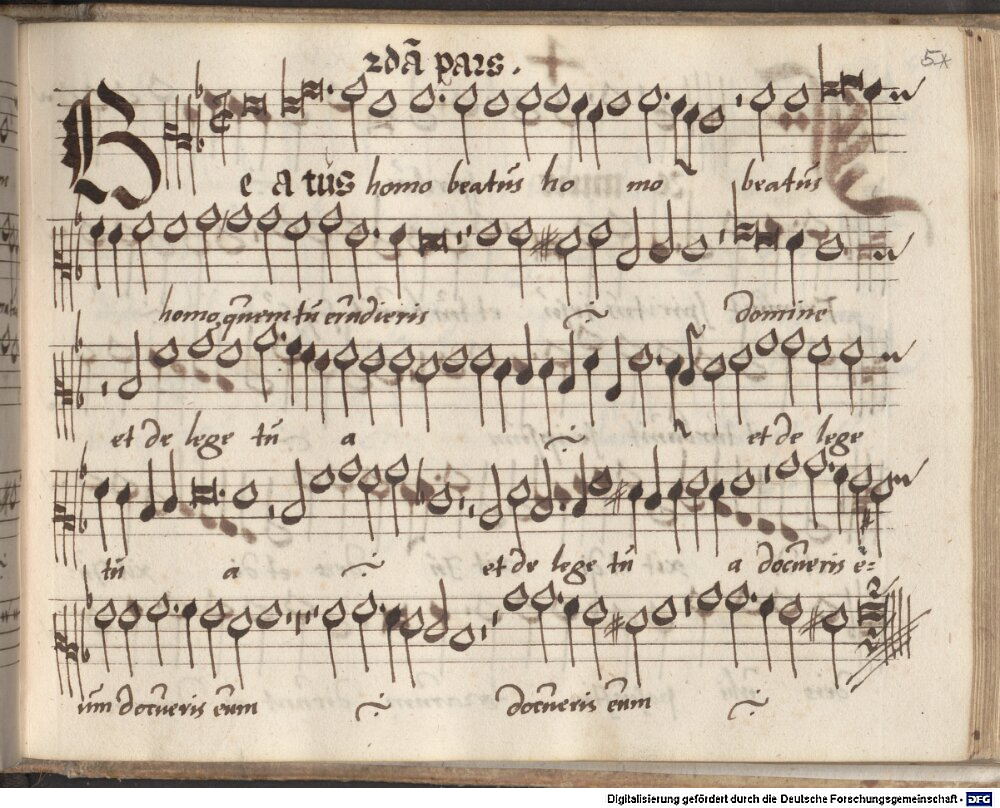 2dã pars.
5
Be a tus homo beatus ho mo beatus
homo quem tu erudieris domine
et de lege tu a et de lege
tu a et de lege tu a docueris e-
um docueris eum docueris eum
Digitalisierung gefördert durch die Deutsche Forschungsgemeinschaft - DFG